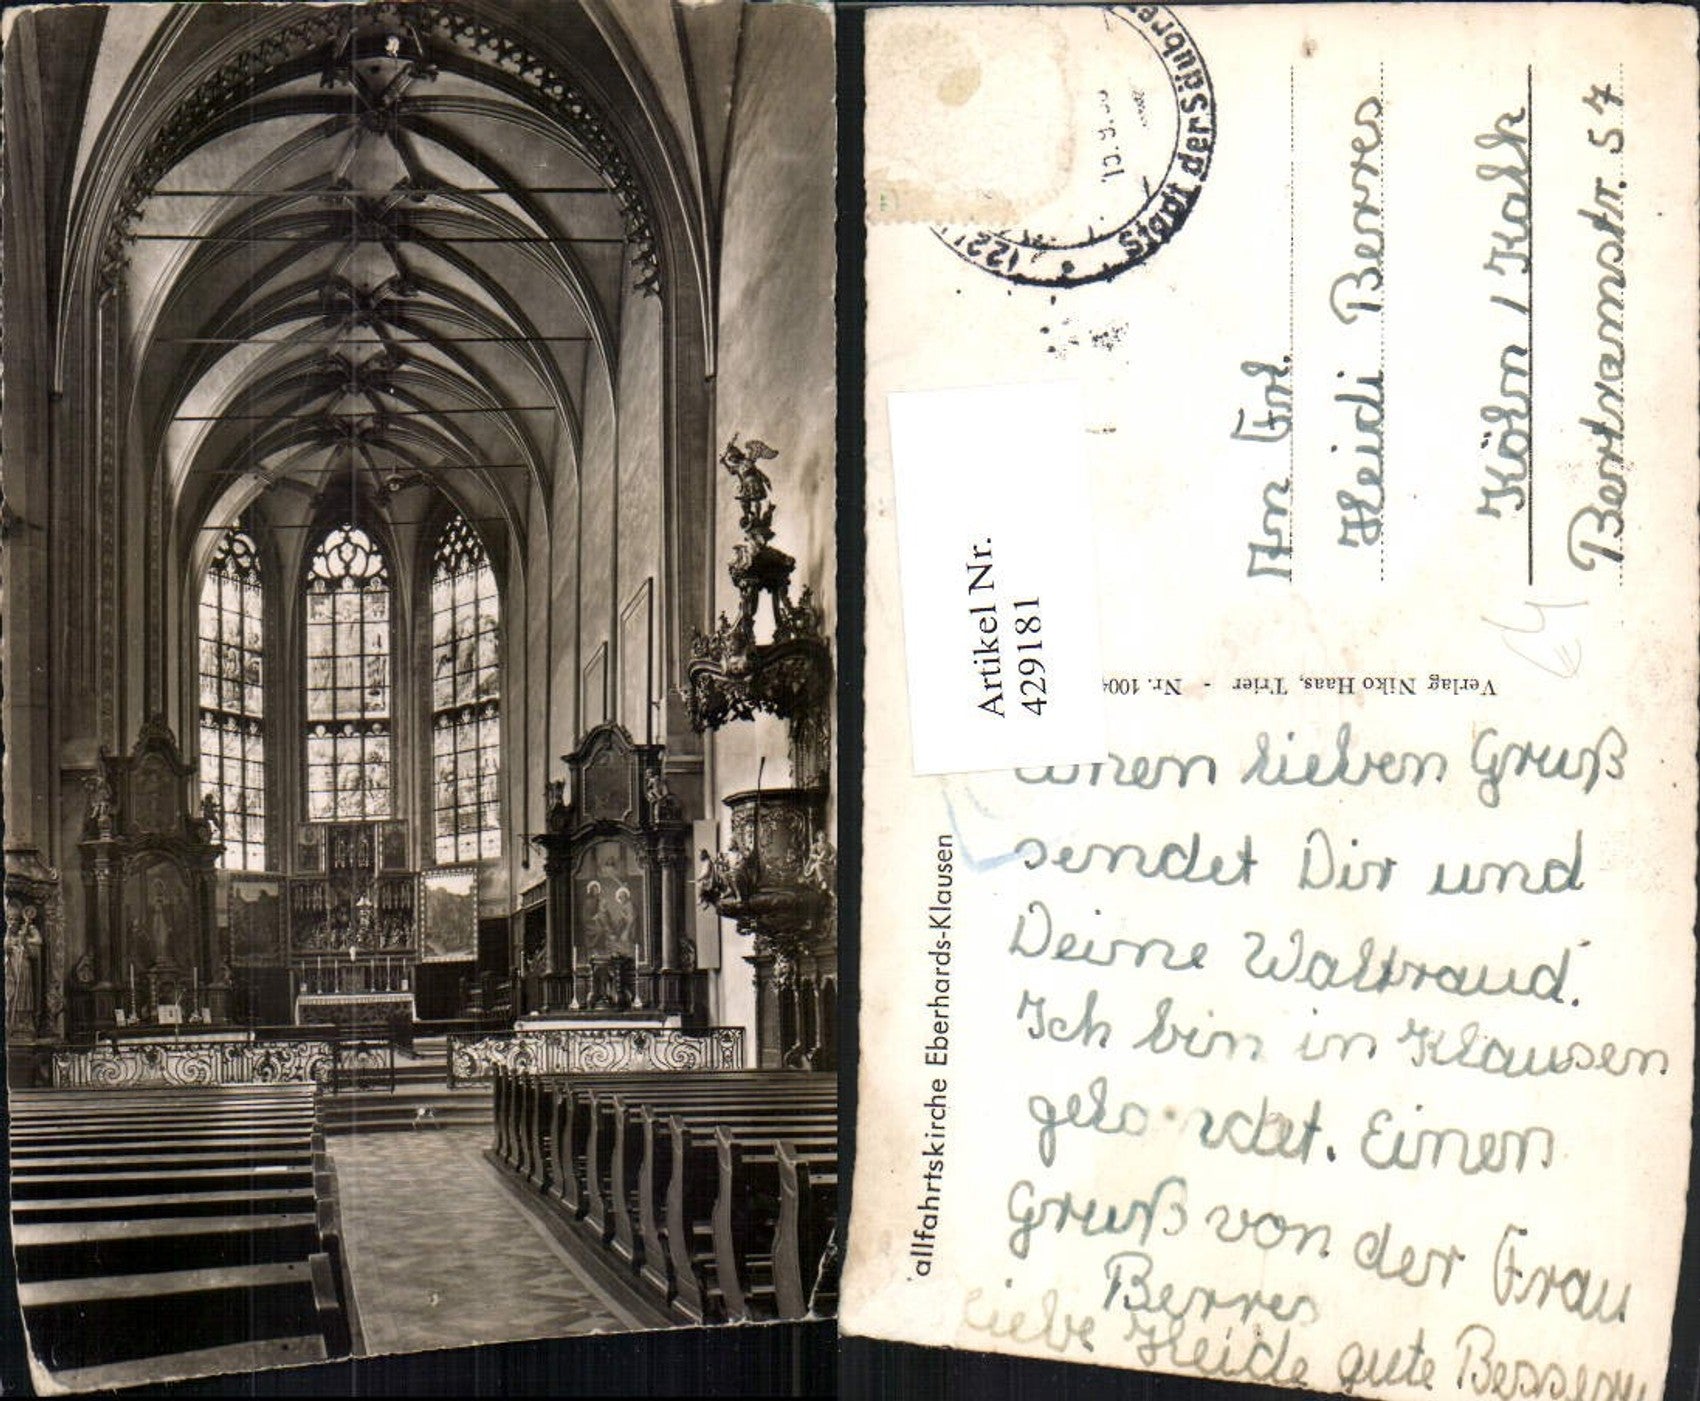 Stadt der Säubre
(22
10.9.
An Frl.
Heidi Berres
Köln / Kalk
Bertramstr. 57
Artikel Nr.
4291181
Verlag Niko Haas, Trier - Nr. 100
allfahrtskirche Eberhards-Klausen
Einen lieben Gruß
sendet Dir und
Deine Waltraud.
Ich bin in Klausen
gelandet. Einen
Gruß von der Frau
Berres
Liebe Heide gute Besserung